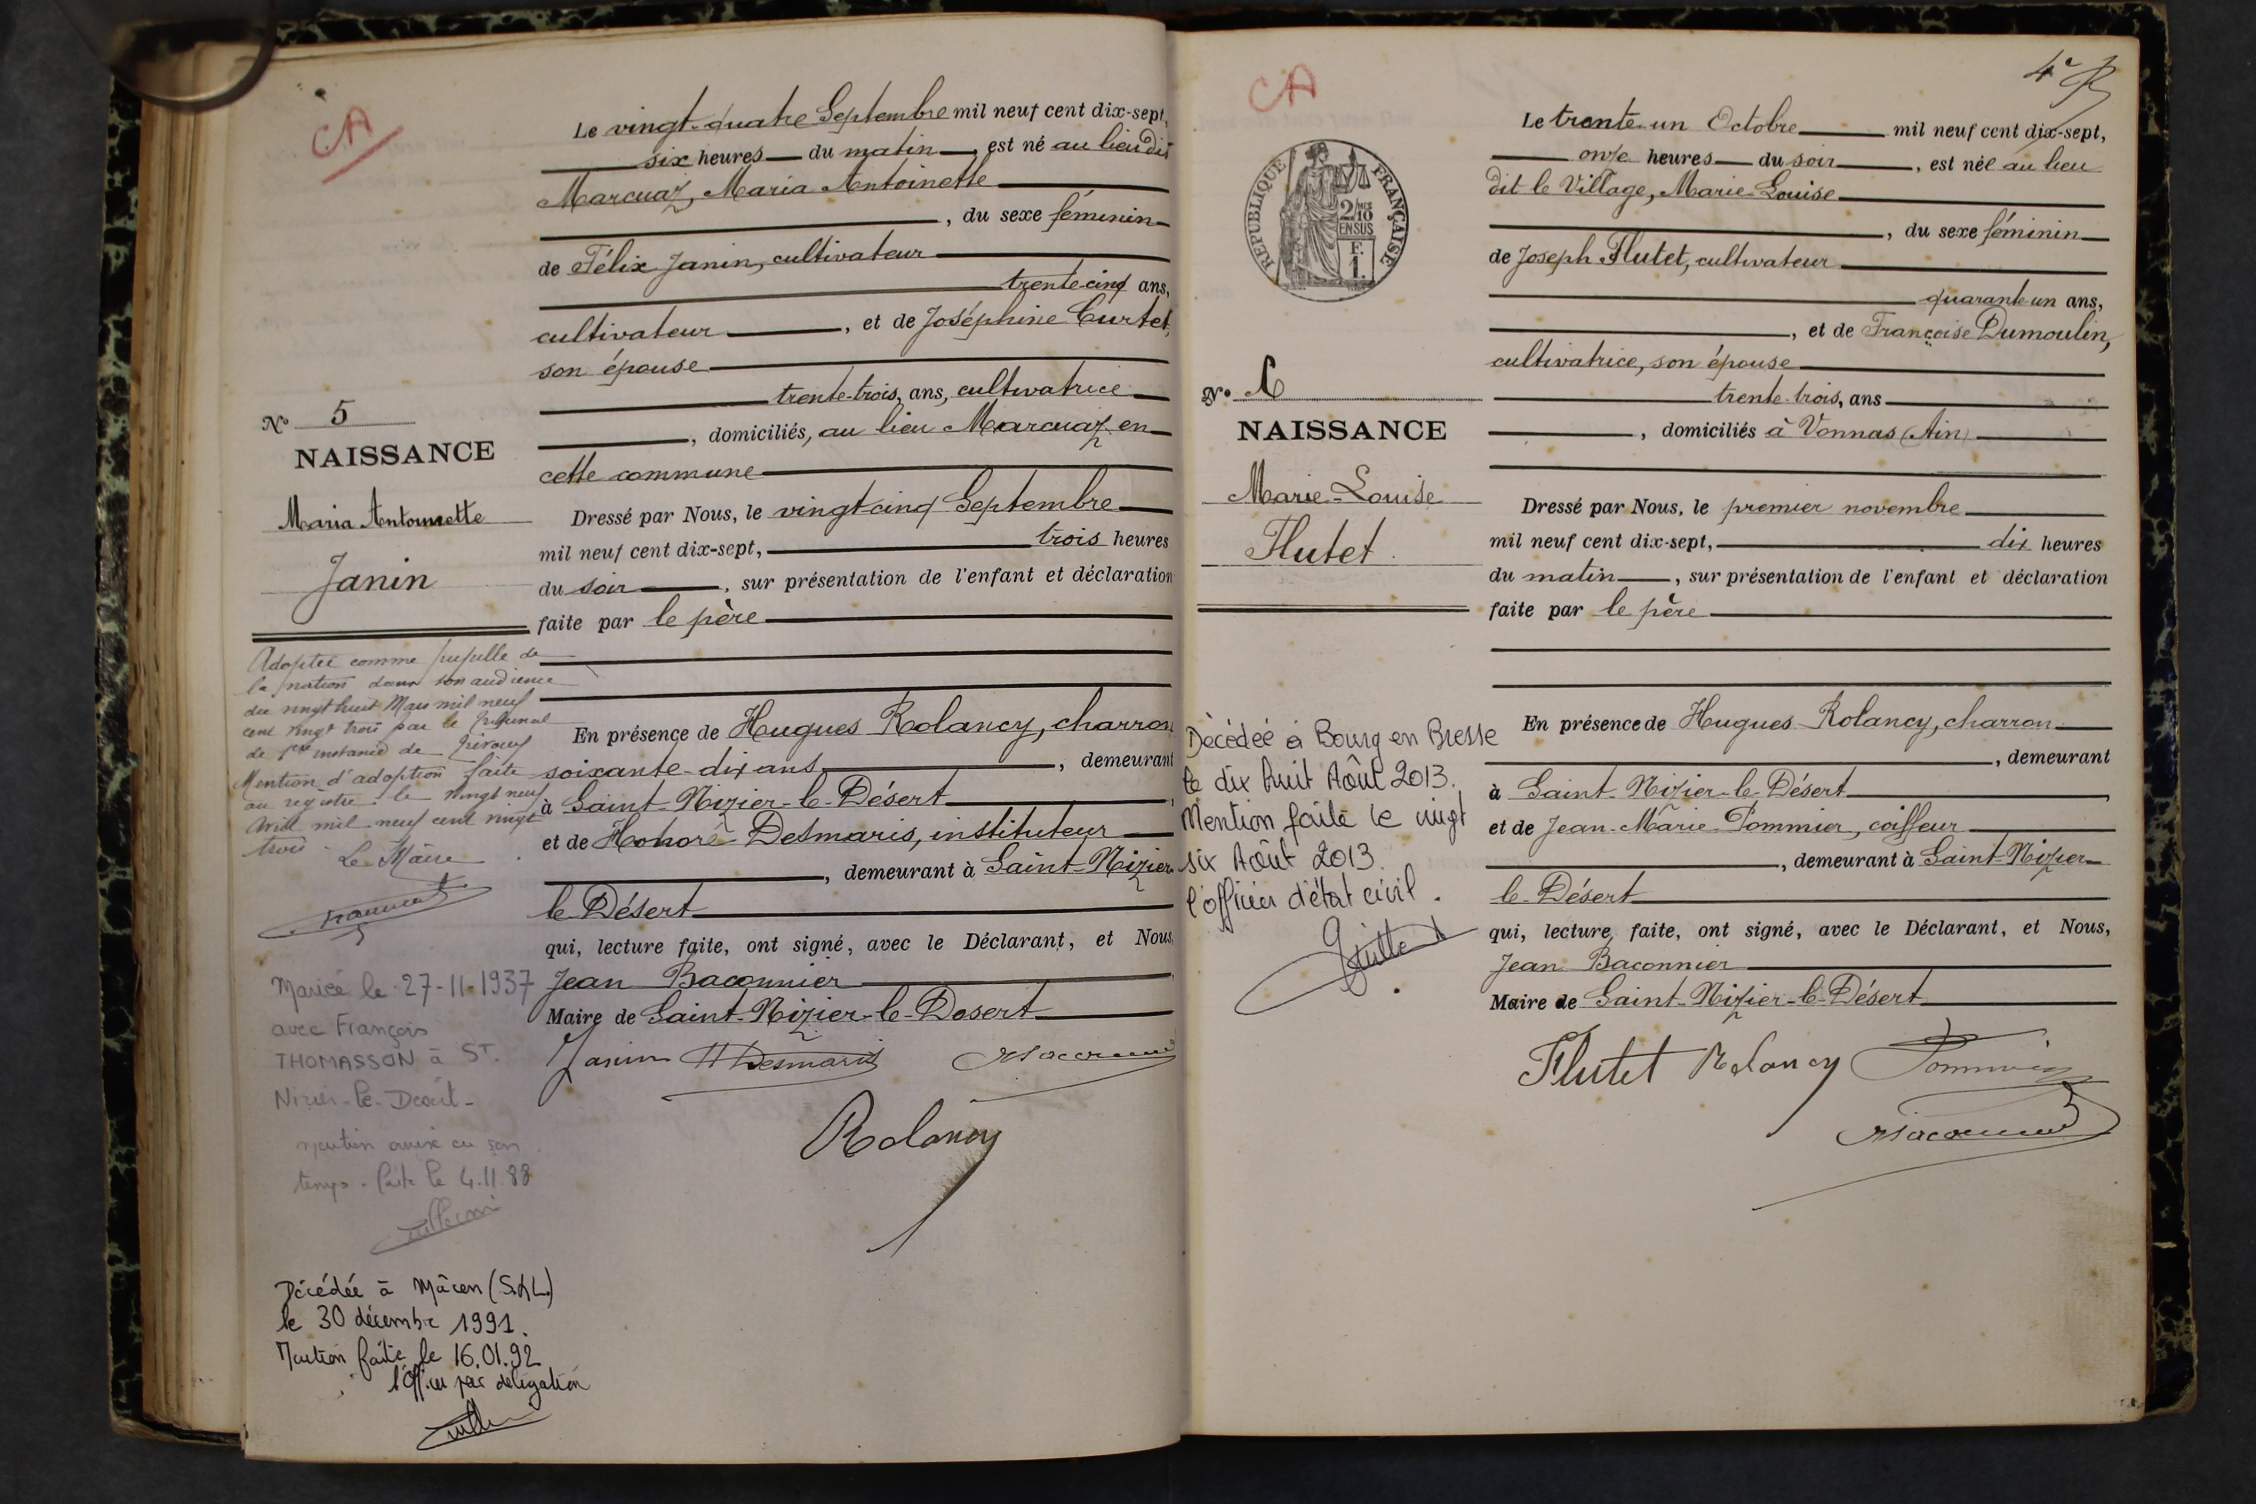 CA
Le vingt-quatre Septembre mil neuf cent dix-sept,
six heures du matin, est né au lieu dit
Marcuaz, Maria Antoinette
, du sexe féminin
de Félix Janin, cultivateur
trente-cinq ans,
cultivateur, et de Joséphine Curtet,
son épouse
trente-trois, ans, cultivatrice
, domiciliés, au lieu Marcuaz en
cette commune
Dressé par Nous, le vingt-cinq Septembre
mil neuf cent dix-sept, trois heures
du soir, sur présentation de l'enfant et déclaration
faite par le père
En présence de Hugues Rolancy, charron
soixante-dix ans, demeurant
à Saint-Nizier-le-Désert,
et de Honoré Desmaris, instituteur
, demeurant à Saint-Nizier
le Désert
qui, lecture faite, ont signé, avec le Déclarant, et Nous,
Jean Baconnier,
Maire de Saint-Nizier-le-Dosert
Janin HDesmaris
Rolancy
No 5
NAISSANCE
Maria Antoinette
Janin
Adoptée comme pupille de
la nation dans son audience
du vingt huit Mars mil neuf
cent vingt trois par le Tribunal
de 1ère instance de Trévoux
Mention d'adoption faite
au registre le vingt neuf
Avril mil neuf cent vingt
trois.
Le Maire
Mariée le 27-11-1937
avec François
THOMASSON à ST.
Nizier-le-Désert-
mention omise en son
temps. faite le 4.11.88
Décédée à Mâcon (S.&L.)
le 30 décembre 1991.
Mention faite le 16.01.92
l'Off.ier par délégation
4e
CA
RÉPUBLIQUE FRANÇAISE
2/10
EN SUS
F.
1.
Le trente-un Octobre mil neuf cent dix-sept,
onze heures du soir, est née au lieu
dit le Village, Marie-Louise
, du sexe féminin
de Joseph Flutet, cultivateur
quarante-un ans,
, et de Françoise Dumoulin,
cultivatrice, son épouse
trente-trois, ans
, domiciliés à Vonnas (Ain)
Dressé par Nous, le premier novembre
mil neuf cent dix-sept, dix heures
du matin, sur présentation de l'enfant et déclaration
faite par le père
En présence de Hugues Rolancy, charron
, demeurant
à Saint-Nizier-le-Désert,
et de Jean-Marie Pommier, coiffeur
, demeurant à Saint-Nizier-
le-Désert
qui, lecture faite, ont signé, avec le Déclarant, et Nous,
Jean Baconnier
Maire de Saint-Nizier-le-Désert
Flutet Rolancy Pommier
No
NAISSANCE
Marie-Louise
Flutet.
Décédée à Bourg en Bresse
le dix huit Août 2013.
Mention faite le vingt
six Août 2013.
l'officier d'état civil.